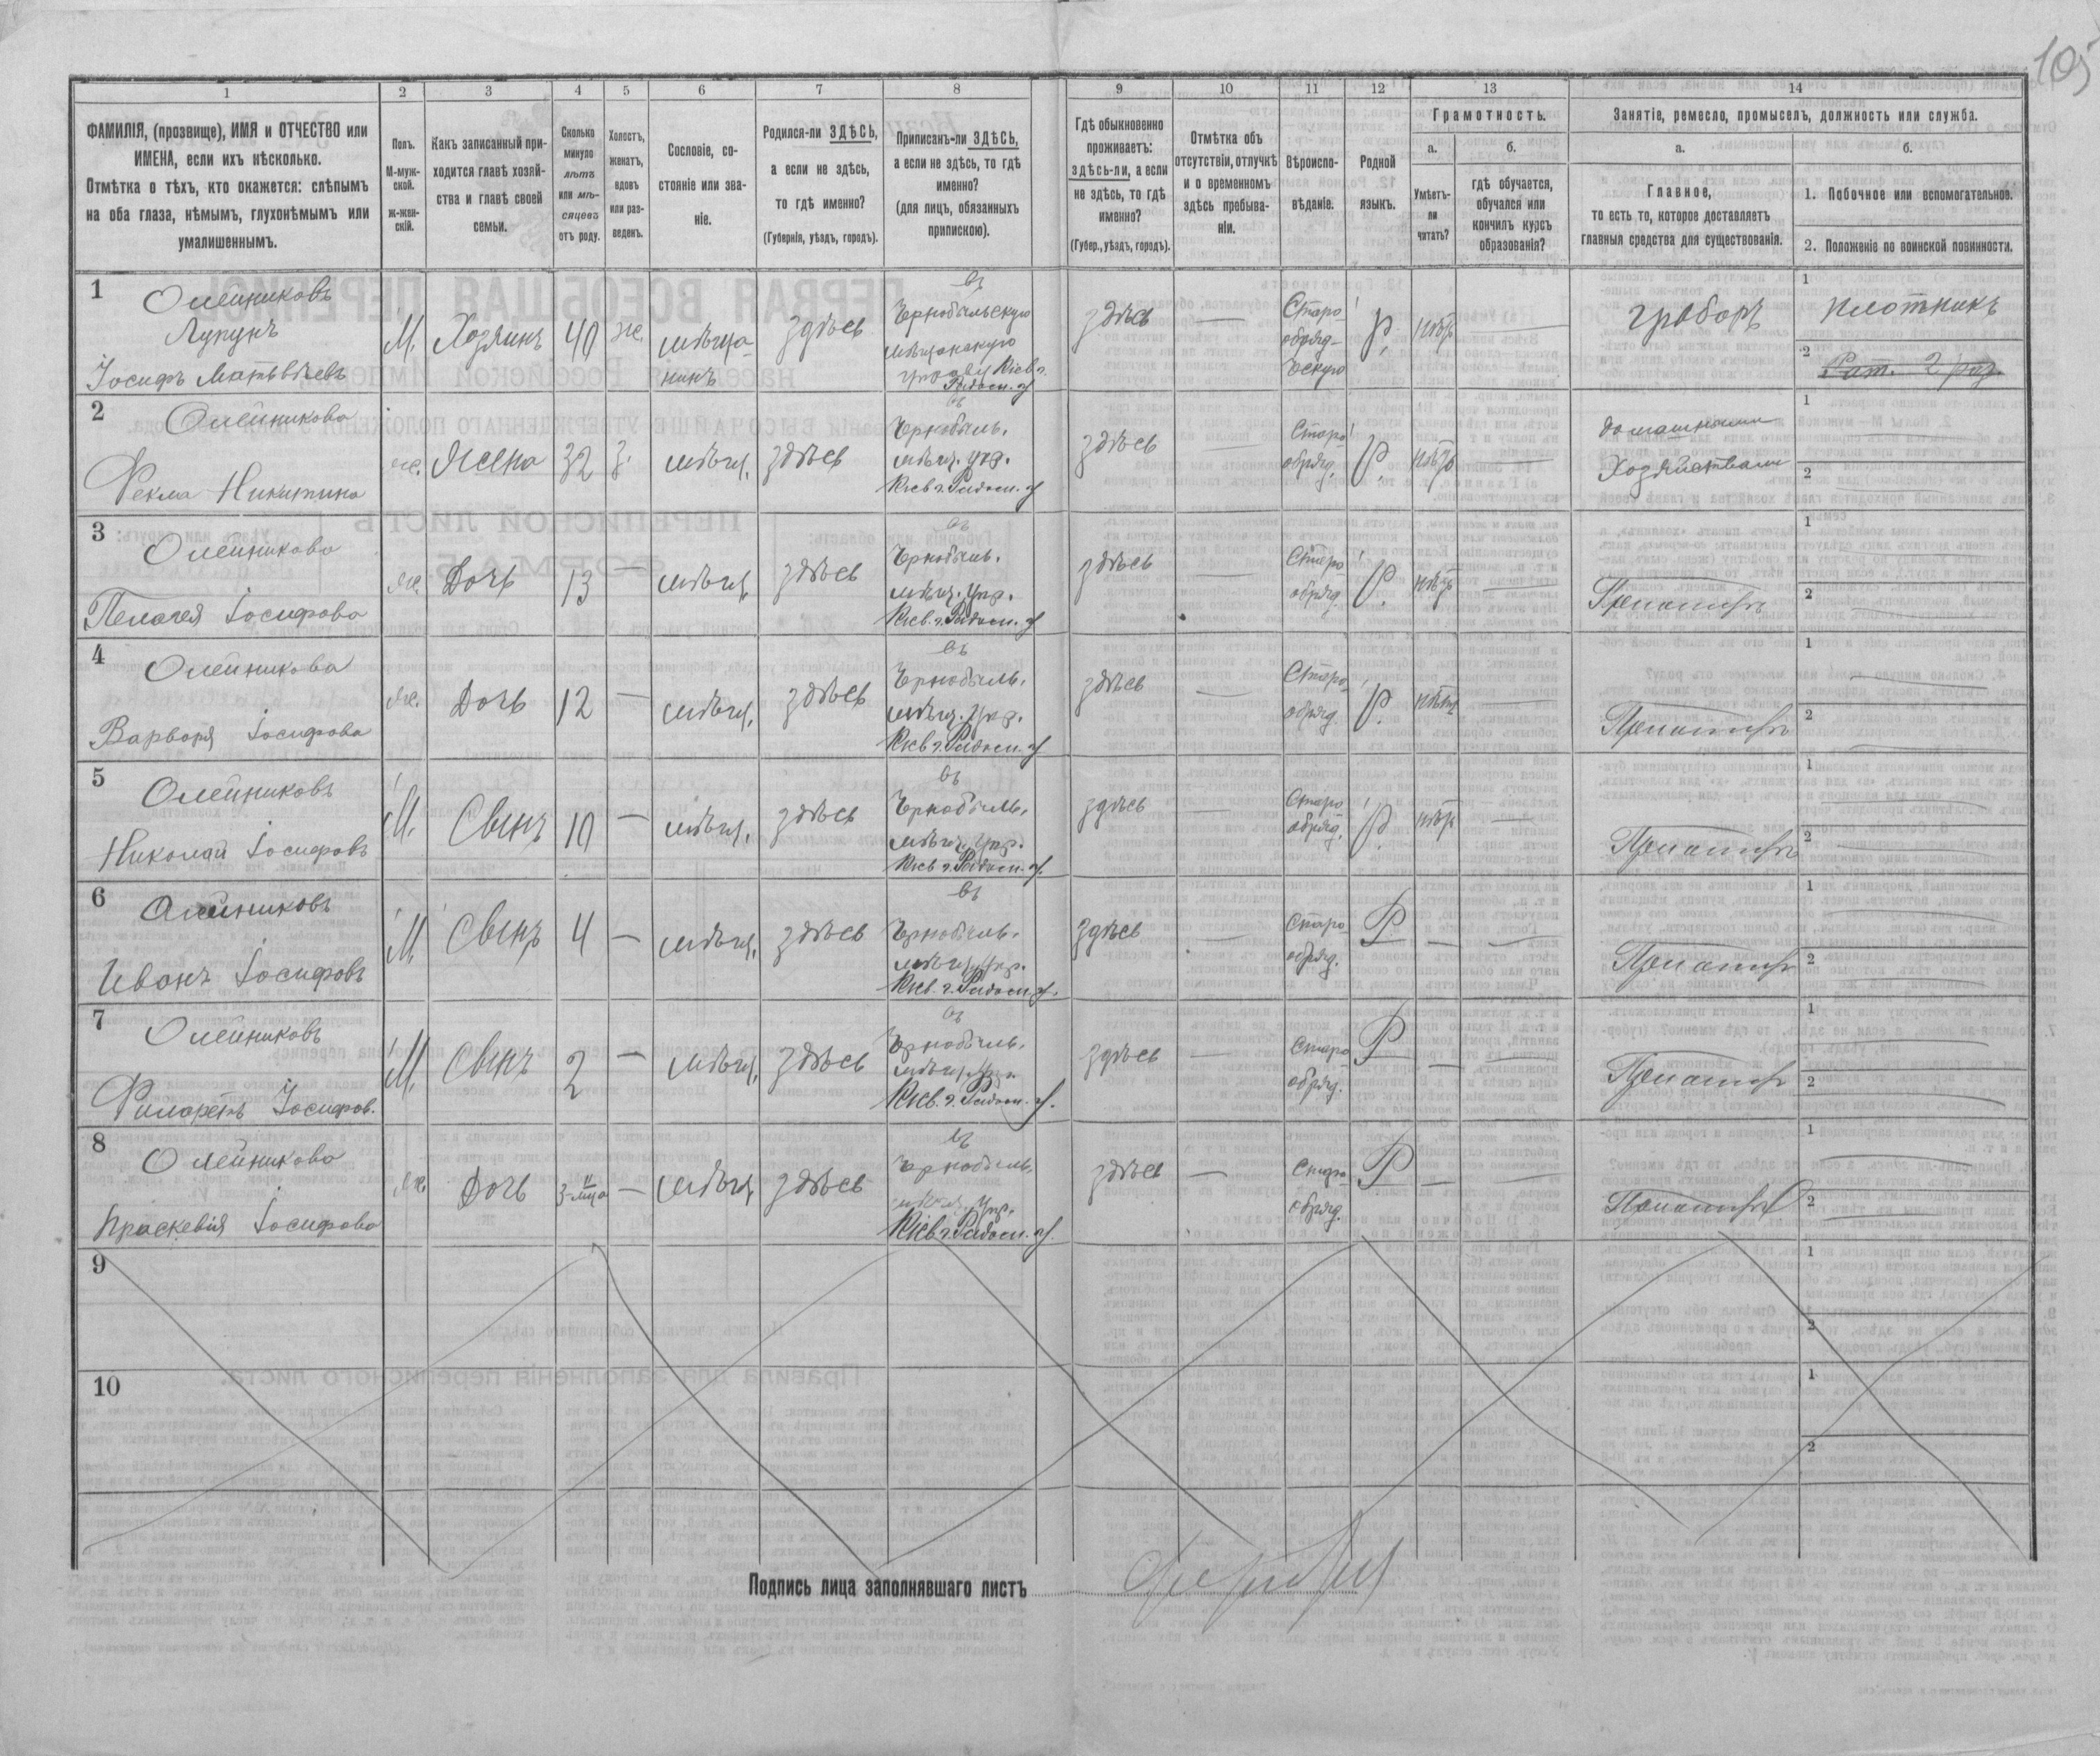 105
1 2 3 4 5 6 7 8 9 10 11 12 13 14
ФАМИЛІЯ, (прозвище), ИМЯ и ОТЧЕСТВО или
ИМЕНА, если ихъ нѣсколько.
Отмѣтка о тѣхъ, кто окажется: слѣпымъ
на оба глаза, нѣмымъ, глухонѣмымъ или
умалишеннымъ.
Полъ.
М-муж-
ской.
ж-жен-
скій.
Какъ записанный при-
ходится главѣ хозяй-
ства и главѣ своей
семьи.
Сколько
минуло
лѣтъ
или мѣ-
сяцевъ
отъ роду.
Холостъ,
женатъ,
вдовъ
или раз-
веденъ.
Сословіе, со-
стояніе или зва-
ніе.
Родился-ли ЗДѢСЬ,
а если не здѣсь,
то гдѣ именно?
(Губернія, уѣздъ, городъ).
Приписанъ-ли ЗДѢСЬ,
а если не здѣсь, то гдѣ
именно?
(для лицъ, обязанныхъ
припискою).
Гдѣ обыкновенно
проживаетъ:
здѣсь-ли, а если
не здѣсь, то гдѣ
именно?
(Губер., уѣздъ, городъ).
Отмѣтка объ
отсутствіи, отлучкѣ
и о временномъ
здѣсь пребыва-
ніи.
Вѣроиспо-
вѣданіе.
Родной
языкъ.
Грамотность.
а.
Умѣетъ-
ли
читать?
б.
гдѣ обучается,
обучался или
кончилъ курсъ
образованія?
Занятіе, ремесло, промыселъ, должность или служба.
а.
Главное,
то есть то, которое доставляетъ
главныя средства для существованія.
б.
1. Побочное или вспомогательное.
2. Положеніе по воинской повинности.
1
Олейниковъ
Іосифъ Матвѣевъ
М. Хозяинъ 40 ж. мѣща-
нинъ
здѣсь
въ
Чернобыльскую
мѣщанскую
управу Кіев г.
Радом. у
здѣсь — Старо
обряд-
ческую
Р. нѣтъ —
граборъ
1 плотникъ
2 Рат. 2 раз.
2
Олейникова
Фекла Никитина
ж. Жена 32 з. мѣщ. здѣсь
въ
Чернобыль.
мѣщ. упр.
Кіев г. Радом. у
здѣсь — Старо
обряд. Р. нѣтъ —
домашними
Хозяйствами
1
2
3
Олейникова
Пелагея Іосифова
ж. Дочь 13 — мѣщ. здѣсь
въ
Чернобыль.
мѣщ. упр.
Кіев. г. Радом. у
здѣсь — Старо
обряд. Р. нѣтъ —
При отцѣ
1
2
4
Олейникова
Варвара Іосифова
ж. Дочь 12 — мѣщ. здѣсь
въ
Чернобыль.
мѣщ. упр.
Кіев г. Радом. у
здѣсь — Старо
обряд. Р. нѣтъ —
При отцѣ
1
2
5
Олейниковъ
Николай Іосифовъ
М. Сынъ 10 — мѣщ. здѣсь
въ
Чернобыль.
мѣщ. упр.
Кіев г. Радом. у.
здѣсь — Старо
обряд. Р. нѣтъ —
При отцѣ
1
2
6
Олейниковъ
Иванъ Іосифовъ
М Сынъ 4 — мѣщ. здѣсь
въ
Чернобыль.
мѣщ. упр.
Кіев. г. Радом. у.
здѣсь — Старо
обряд. Р — —
При отцѣ
1
2
7
Олейниковъ
Филаретъ Іосифов.
М. Сынъ 2 — мѣщ. здѣсь
въ
Чернобыль.
мѣщ. упр.
Кіев. г. Радом. у.
здѣсь — Старо
обряд. Р — —
При отцѣ
1
2
8
Олейникова
Праскевія Іосифова
ж. Дочь 3 м-ца — мѣщ. здѣсь
въ
Чернобыль.
мѣщ. упр.
Кіев г. Радом. у.
здѣсь — Старо
обряд. Р — —
При отцѣ
1
2
9
1
2
10
1
2
Подпись лица заполнявшаго листъ